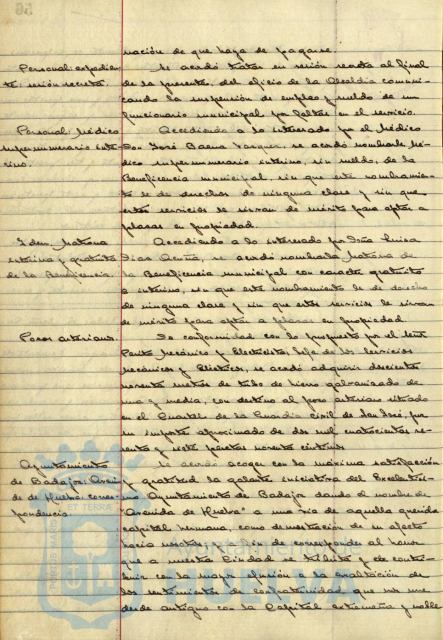 nación de que haya de pagarse.
Personal: expedien
te: sesión secreta.
Se acordó tratar en sesión secreta al final
de la presente, del oficio de la Alcaldía comuni-
cando la suspensión de empleo y sueldo de un
funcionario municipal por faltas en el servicio.
Personal: Médico
supernumerario inte-
rino.
Accediendo a lo interesado por el Médico
Don José Baena Vazquez, se acordó nombrarle Mé
dico supernumerario interino, sin sueldo, de la
Beneficencia municipal, sin que este nombramien-
to le de derechos de ninguna clase y sin que
estos servicios le sirvan de mérito para optar a
plazas en propiedad.
Idem. Matrona
interina y gratuita
de la Beneficencia.
Accediendo a lo interesado por Doña Luisa
Dias Acuña, se acordó nombrarla Matrona de
la Beneficencia municipal con caracter gratuito
e interino, sin que este nombramiento le de derecho
de ninguna clase y sin que estos servicios le sirvan
de mérito para optar a plazas en propiedad.
Pozos artesianos.
De conformidad con lo propuesto por el
Perito Mecánico y Electricista, Jefe de los Servicios
Mecánicos y Eléctricos, se acordó adquirir doscientos
noventa metros de tubo de hierro galvanizado de
una y media, con destino al pozo artesiano situado
en el Cuartel de la Guardia civil de San José, por
un importe aproximado de dos mil cuatrocientas se
senta y siete pesetas noventa céntimos.
Ayuntamiento
de Badajoz: Aveni
da de Huelva: corres
pondencia.
Se acordó acoger con la máxima satisfacción
y gratitud la galante iniciativa del Excelentísi-
mo Ayuntamiento de Badajoz dando el nombre de
"Avenida de Huelva" a una vía de aquella querida
capital hermana, como demostración de su afecto
hacia nosotros. A fin de corresponder al honor
que a nuestra Ciudad se tributa y de contri-
buir con la mayor efusión a la exaltación de
los sentimientos de confraternidad que nos une
desde antiguo con la Capital extremeña y noble